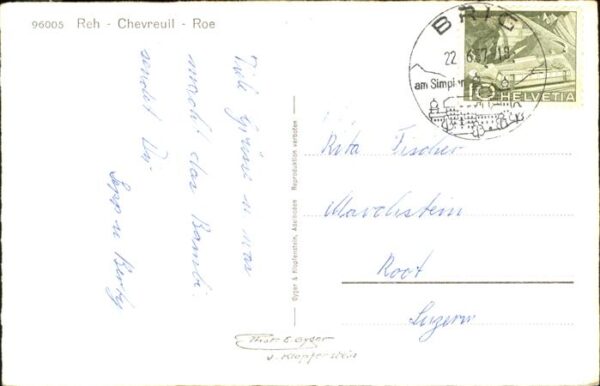 96005 Reh - Chevreuil - Roe
BRIG
22. 6. 57 - 18
am Simplon
10 HELVETIA
Viele Grüsse u was
macht das Bambi.
sendet Dir
Sepp u Berty
Gyger & Klopfenstein, Adelboden Reproduktion verboten
Rita Fischer
Root
Luzern
Phot E. Gyger
u. Klopfenstein